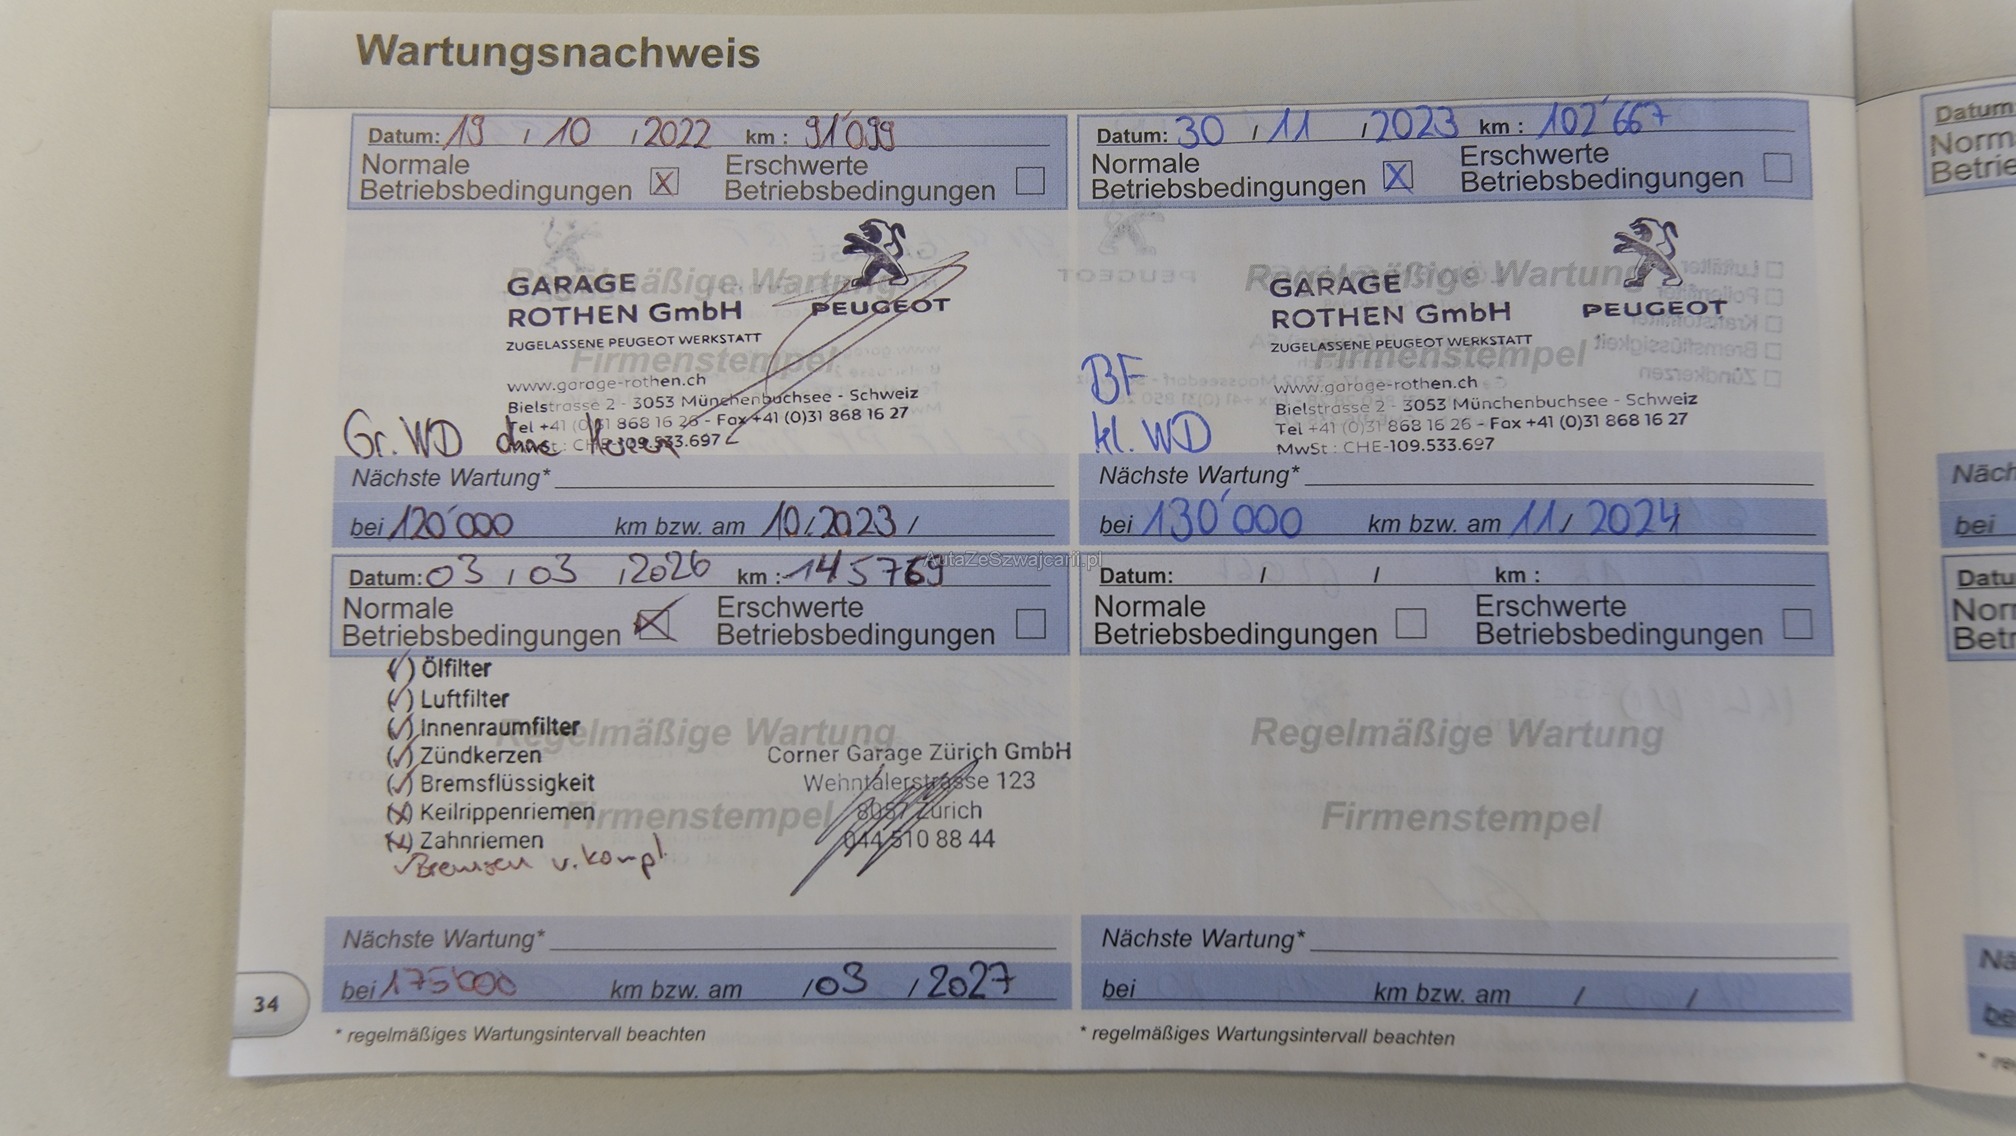 Wartungsnachweis
Datum: 19 / 10 / 2022 km : 91'099
Normale Betriebsbedingungen X Erschwerte Betriebsbedingungen
Regelmäßige Wartung
GARAGE
ROTHEN GmbH
PEUGEOT
ZUGELASSENE PEUGEOT WERKSTATT
Firmenstempel
www.garage-rothen.ch
Bielstrasse 2 - 3053 Münchenbuchsee - Schweiz
Tel +41 (0)31 868 16 26 - Fax +41 (0)31 868 16 27
MwSt : CHE-109.533.697
Gr. WD ohne
Nächste Wartung*
bei 120'000 km bzw. am 10/2023 /
Datum: 30 / 11 / 2023 km : 102'667
Normale Betriebsbedingungen X Erschwerte Betriebsbedingungen
Regelmäßige Wartung
GARAGE
ROTHEN GmbH
PEUGEOT
ZUGELASSENE PEUGEOT WERKSTATT
Firmenstempel
www.garage-rothen.ch
Bielstrasse 2 - 3053 Münchenbuchsee - Schweiz
Tel +41 (0)31 868 16 26 - Fax +41 (0)31 868 16 27
MwSt : CHE-109.533.697
BF
kl. WD
Nächste Wartung*
bei 130'000 km bzw. am 11/ 2024
AutaZeSzwajcarii.pl
Datum: 03 / 03 / 2026 km : 145769
Normale Betriebsbedingungen X Erschwerte Betriebsbedingungen
(✓) Ölfilter
(✓) Luftfilter
(✓) Innenraumfilter
(✓) Zündkerzen
(✓) Bremsflüssigkeit
(X) Keilrippenriemen
(X) Zahnriemen
✓Bremsen v. kompl.
Regelmäßige Wartung
Firmenstempel
Corner Garage Zürich GmbH
Wehntalerstrasse 123
8057 Zürich
044 510 88 44
Nächste Wartung*
bei 175000 km bzw. am /03 / 2027
34
* regelmäßiges Wartungsintervall beachten
Datum: / / km :
Normale Betriebsbedingungen Erschwerte Betriebsbedingungen
Regelmäßige Wartung
Firmenstempel
Nächste Wartung*
bei km bzw. am / /
* regelmäßiges Wartungsintervall beachten
Datum